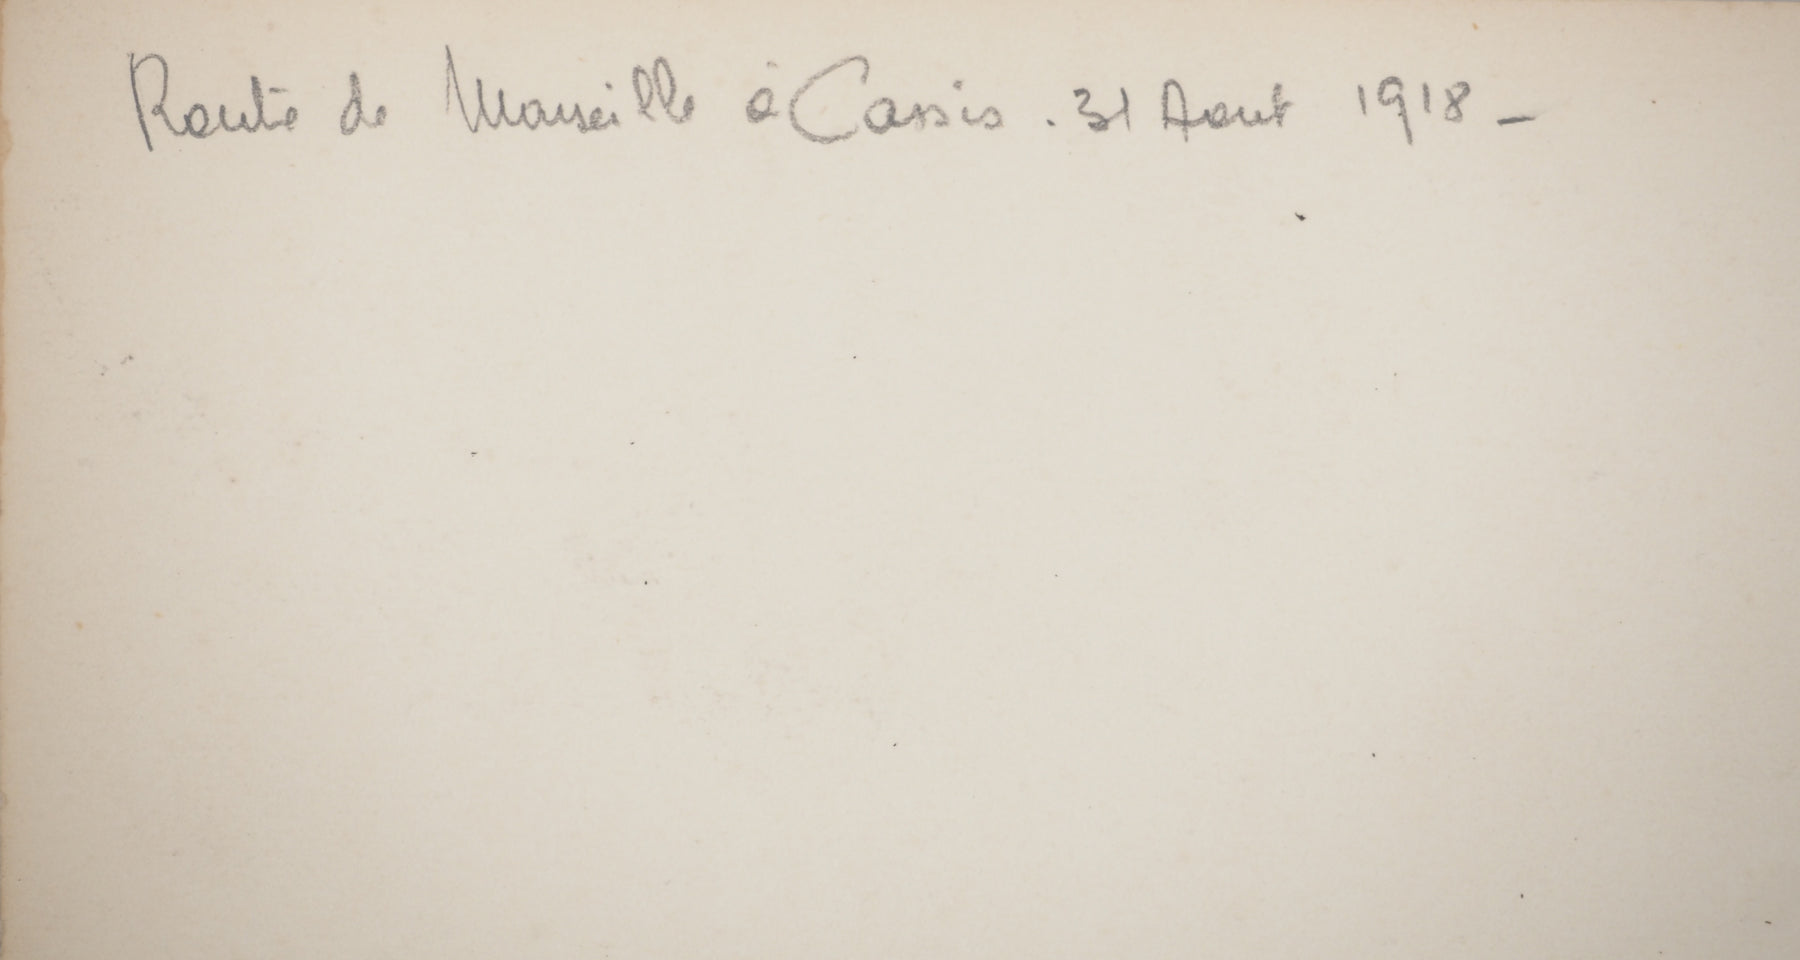 Route de Marseille à Cassis . 31 Aout 1918 –